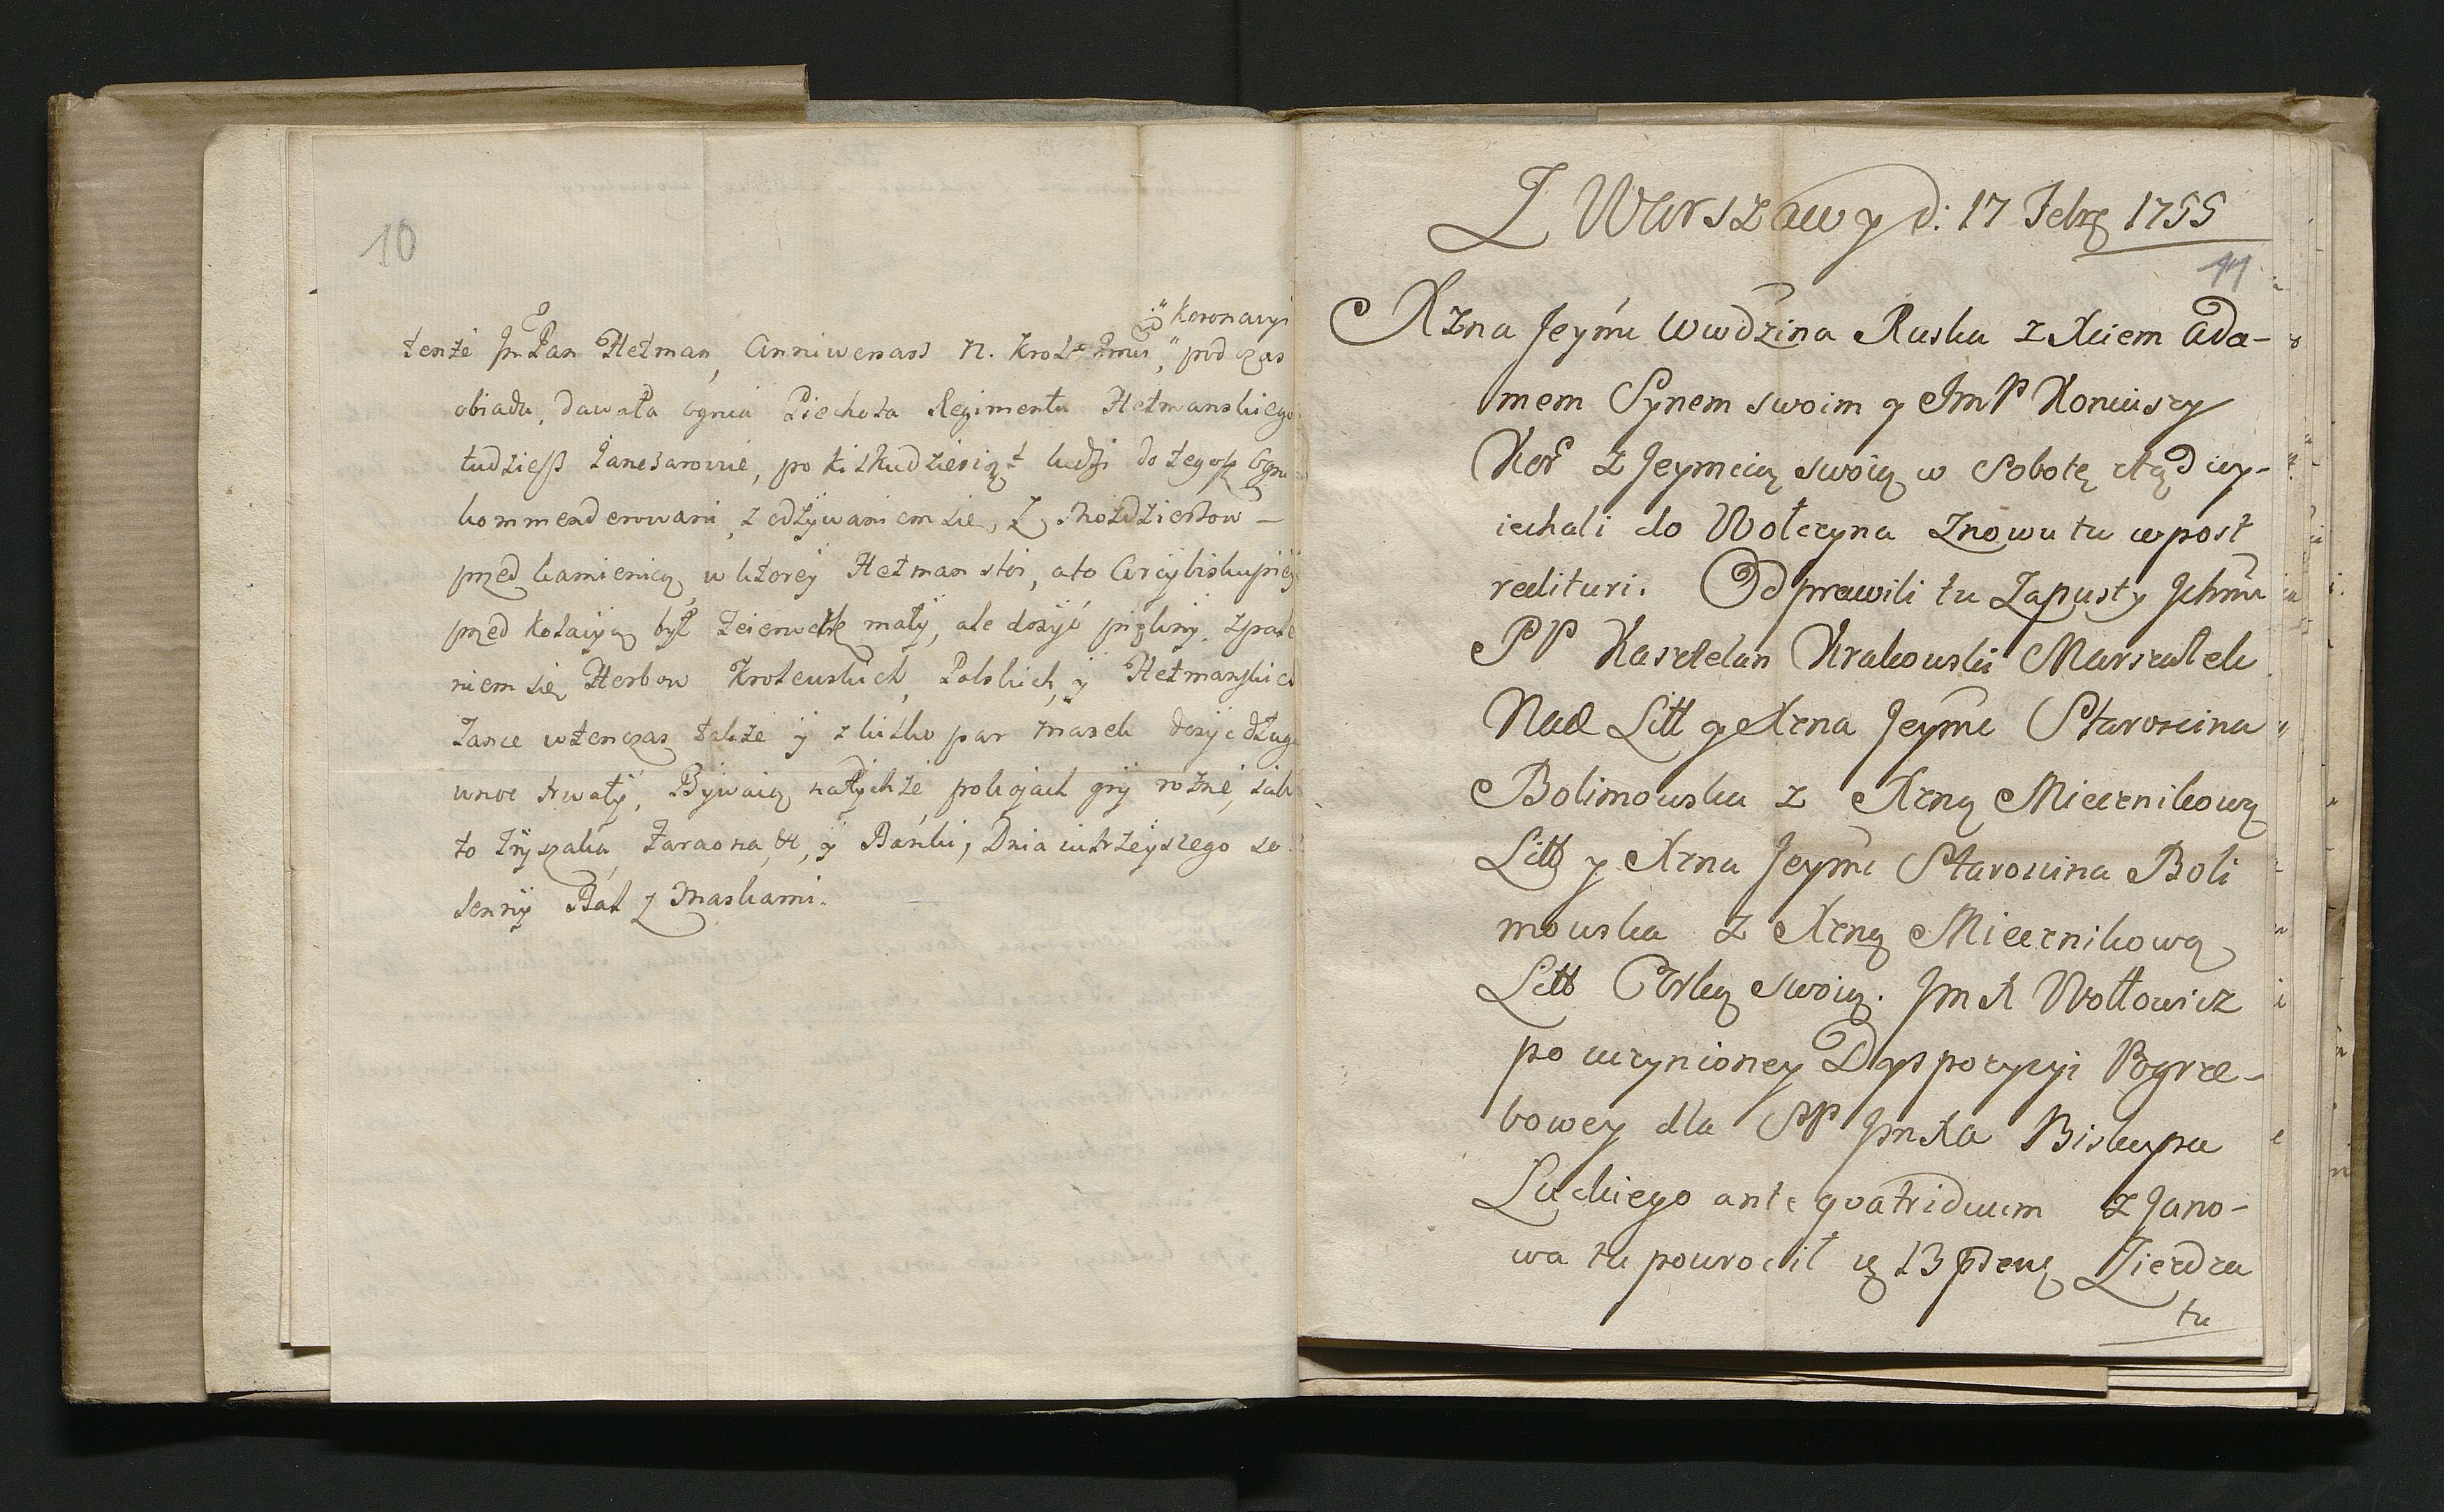 10
Koronacyi
tenże Jm Pan Hetman, Anniwersarz N. Krola Jmci, podczas
obiadu, dawała ognia Piechota Regimentu Hetmanskiego
tudziesz Janczarowie, po kilkudziesiąt ludzi do tegoż Ogni
kommenderowani, z odzywaniem się z Moździerzow
przed kamienicą w ktorey Hetman stoi, a to Arcybiskupiey
przed Kolacyą był feierwerk mały, ale dosyć piękny, z pale
niem się Herbow Krolewskich, Polskich, y Hetmanskich
Tance wtenczas także y z kilko par masek dosyc długo
wnoc trwały, Bywaią na tychże pokojach gry rożne, iako
to Tryszaka, Faraona, &, y Banki, Dnia iutrzeyszego so
lenny Bal z Maskami.

Z Warszawy d: 17 Febrz 1755
11
Xzna Jeymć Wwdzina Ruska z Xciem Ada-
mem Synem swoim y JmP Koniuszy
Kor z Jeymcią swoią w Sobotę ztąd wy-
iechali do Wołczyna znowu tu w post
redituri. Odprawili tu Zapusty Jchmć
PP Kasztelan Krakowski Marszałek
Nad Litt y Xzna Jeymć Staroscina
Bolimowska z Xzną Miecznikową
Litt y Xzna Jeymć Staroscina Boli
mowska z Xzną Miecznikową
Litt Corką swoią. Jm X Wołłowicz
po uczynioney Dyspozycyi Pogrze-
bowey dla SP Jm Xa Biskupa
Luckiego ante quatriduum z Jano-
wa tu powrocił 13 Zierdza
tu